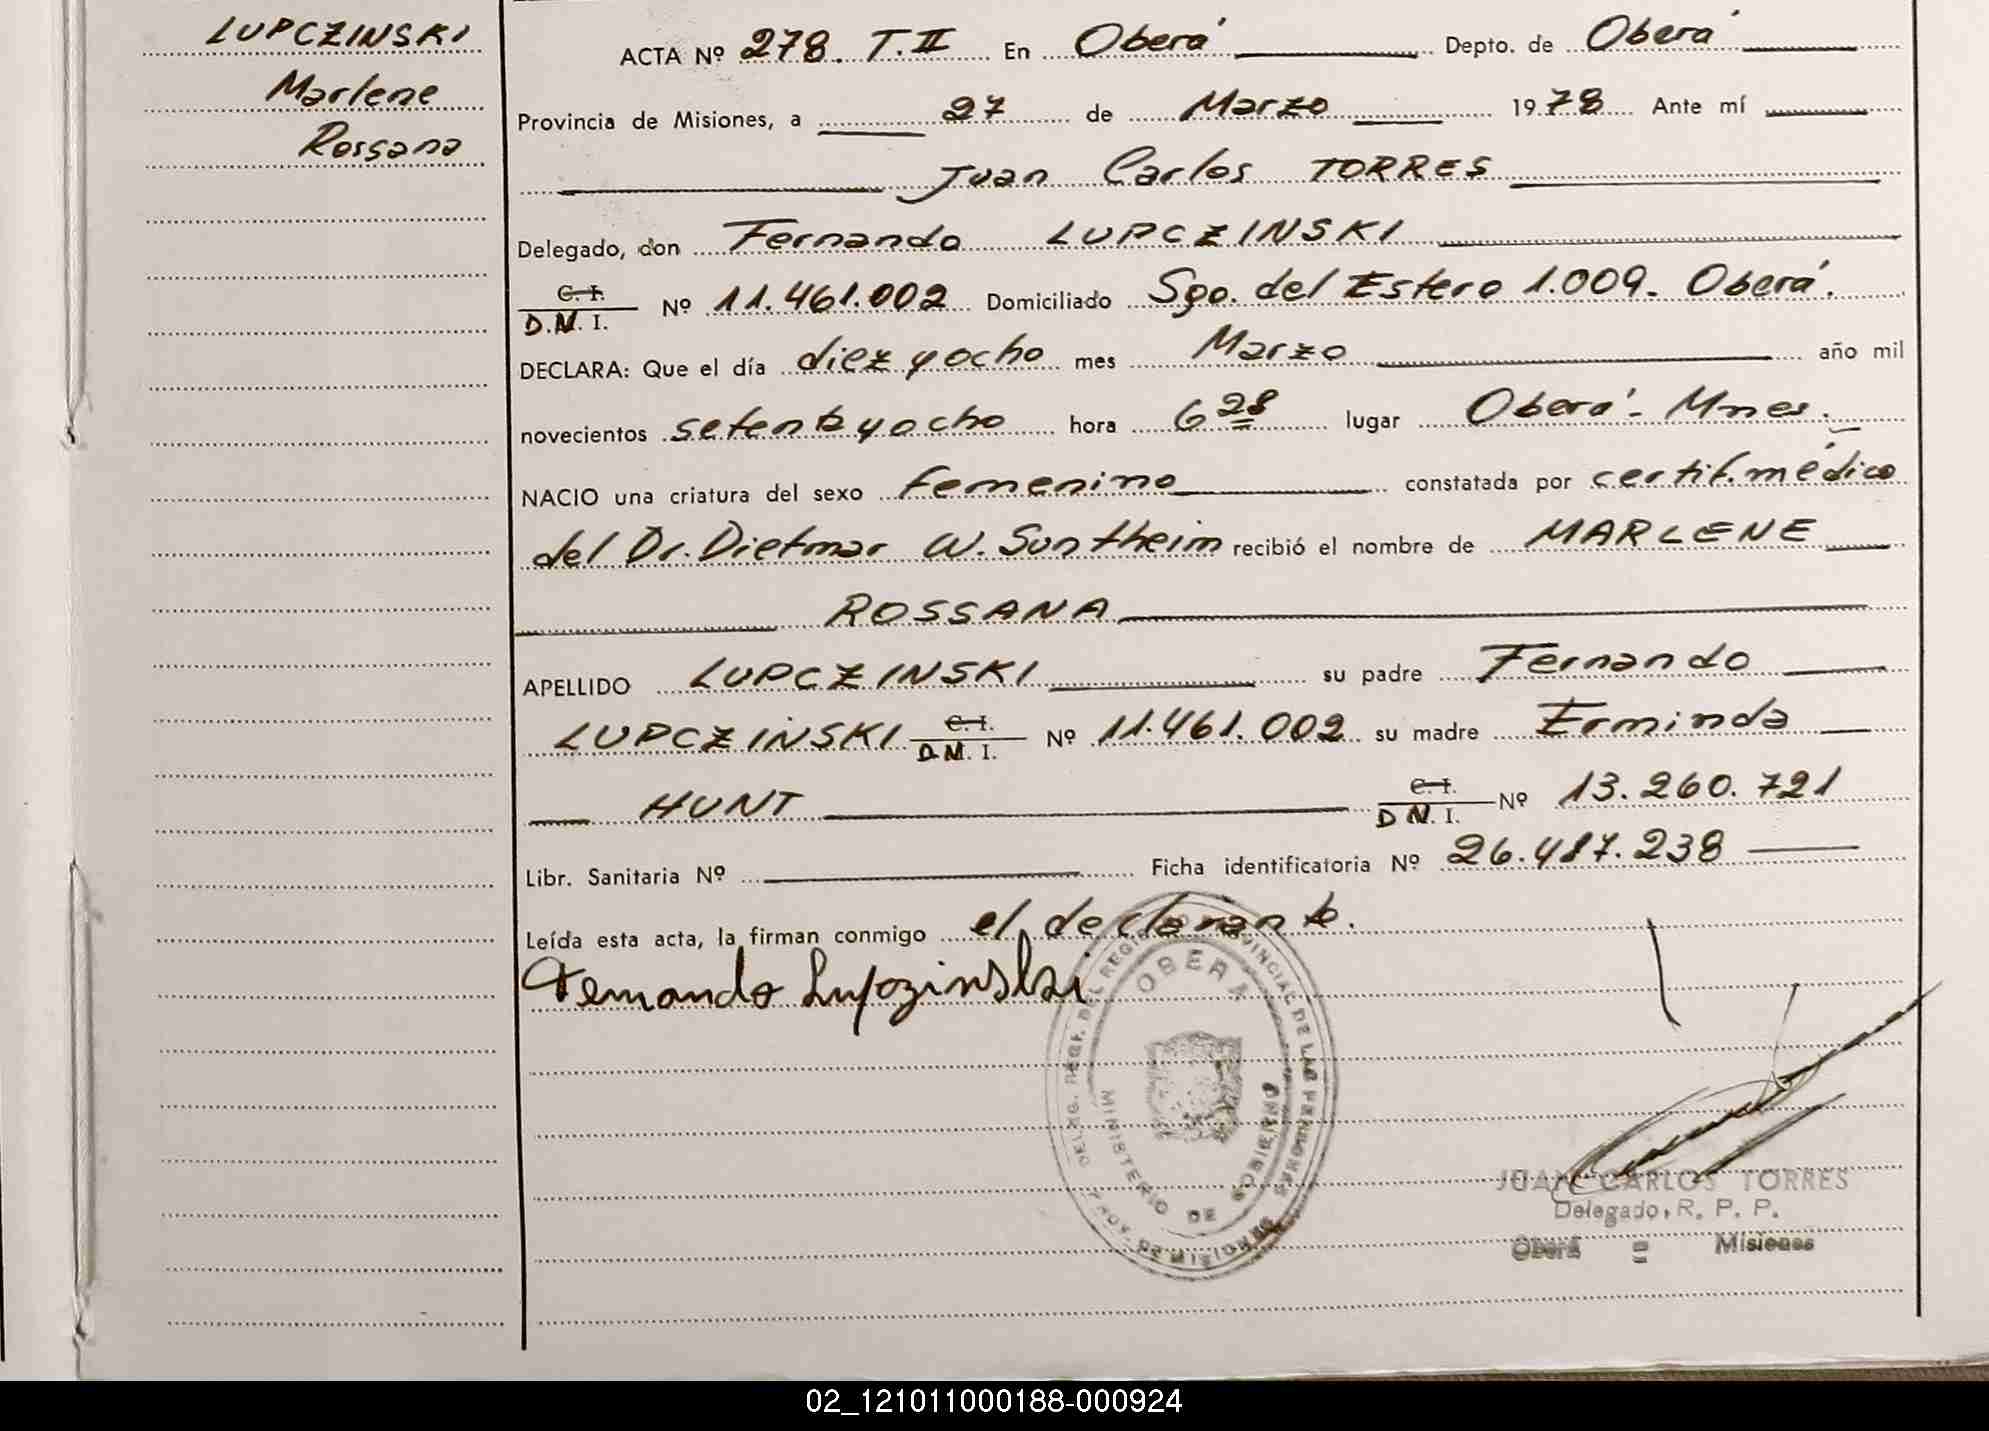 LUPCZINSKI
Marlene
Rossana
ACTA Nº 278. T.II En Oberá Depto. de Oberá
Provincia de Misiones, a 27 de Marzo 1978 Ante mí
Juan Carlos TORRES
Delegado, don Fernando LUPCZINSKI
C. I.
D.N. I. Nº 11.461.002 Domiciliado Sgo. del Estero 1.009. Oberá.
DECLARA: Que el día diez y ocho mes Marzo año mil
novecientos setenta y ocho hora 6 28 lugar Oberá - Mnes.
NACIO una criatura del sexo femenino constatada por certif. médico
del Dr. Dietmar W. Sontheim recibió el nombre de MARLENE
ROSSANA
APELLIDO LUPCZINSKI su padre Fernando
LUPCZINSKI C. I. D.N. I. Nº 11.461.002 su madre Erminda
HUNT C. I. D N. I. Nº 13.260.721
Libr. Sanitaria Nº Ficha identificatoria Nº 26.487.238
Leída esta acta, la firman conmigo el declarante.
Fernando Lupczinski
OBERA
MINISTERIO DE GOBIERNO
JUAN CARLOS TORRES
Delegado, R. P. P.
Oberá = Misiones
02_121011000188-000924